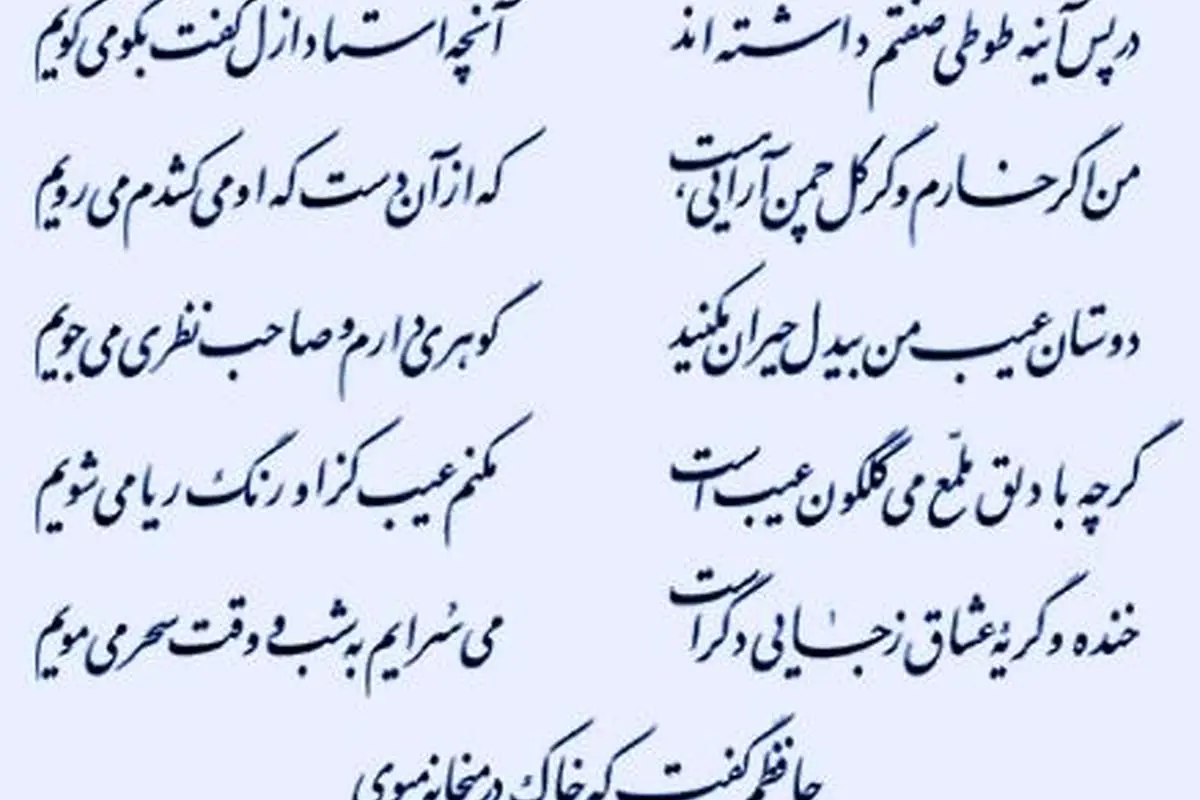 در پس آینه طوطی صفتم داشته‌اند آنچه استاد ازل گفت بگو می‌گویم
من اگر خارم و گر گل چمن‌آرایی است که از آن دست که او می‌کشدم می‌رویم
دوستان عیب من بیدل حیران مکنید گوهری دارم و صاحب نظری می‌جویم
گرچه با دلق ملمّع می گلگون عیب است مکنم عیب کزاو رنگ ریا می‌شویم
خنده و گریهٔ عشاق ز جایی دگر است می‌سرایم به شب و وقت سحر می‌مویم
حافظم گفت که خاک در میخانه مبوی